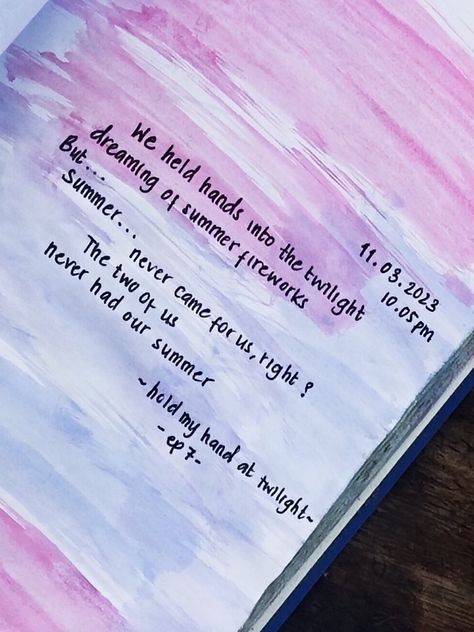 We held hands into the twilight
dreaming of summer fireworks
But...
Summer... never came for us, right?
The two of us
never had our summer
~hold my hand at twilight~
-ep 7-
11.03.2023
10.05pm